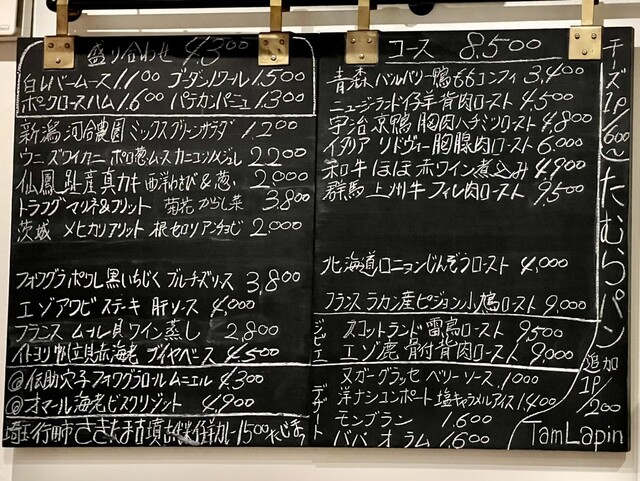 盛り合わせ 4,300
白レバームース 1,100 ブーダンノワール 1,500
ポークロースハム 1,600 パテカンパーニュ 1,300
新潟 河合農園 ミックスグリーンサラダ 1,200
ウニ ズワイカニー ポロ葱ムース カニコンソメジュレ 2200
仙鳳趾産真カキ 西洋わさび&葱 2,000
トラフグ マリネ&フリット 菊花 からし菜 3,800
茨城 メヒカリフリット 根セロリ アンチョビ 2,000
フォワグラポワレ 黒いちじく ブルーチーズソース 3,800
エゾアワビステーキ 肝ソース 4,000
フランス ムール貝ワイン蒸し 2,800
イトヨリ 帆立貝 赤海老 ブイヤベース 4,500
@伝助穴子フォワグラロールムニエル 4,300
@オマール海老ビスクリゾット 4,900
埼玉 行田市 ささたま古墳 仔羊カレー 1500
コース 8,500
青森 バルバリー鴨ももコンフィ 3,400
ニュージーランド仔羊背肉ロースト 4,500
宇治 京鴨 胸肉ハチミツロースト 4,800
イタリア リドヴォー胸腺肉ロースト 6,000
和牛 ほほ 赤ワイン煮込み 4,900
群馬 上州牛 フィレ肉ロースト 9,500
北海道ロニョンじんぞうロースト 4,000
フランス ラカン産ピジョン小鳩ロースト 9,000
ジビエ
スコットランド雷鳥ロースト 9,500
エゾ鹿 骨付背肉ロースト 9,000
デザート
ヌガーグラッセ ベリーソース 1,000
洋ナシコンポート 塩キャラメルアイス 1,400
モンブラン 1,600
ババ オ ラム 1,600
チーズ 1P/600
たむらパン
追加 1P/200
TamLapin